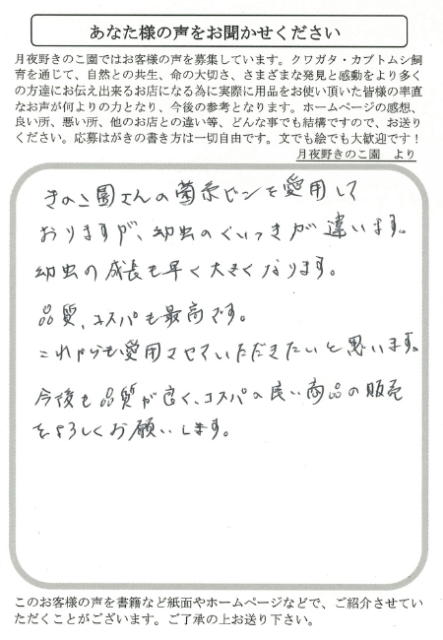 あなた様の声をお聞かせください
月夜野きのこ園ではお客様の声を募集しています。クワガタ・カブトムシ飼
育を通じて、自然との共生、命の大切さ、さまざまな発見と感動をより多く
の方達にお伝え出来るお店になる為に実際に用品をお使い頂いた皆様の率直
なお声が何よりの力となり、今後の参考となります。ホームページの感想、
良い所、悪い所、他のお店との違い等、どんな事でも結構ですので、お送り
ください。応募はがきの書き方は一切自由です。文でも絵でも大歓迎です！
月夜野きのこ園　より
きのこ園さんの菌糸ビンを愛用して
おりますが、幼虫のくいつきが違います。
幼虫の成長も早く大きくなります。
品質、コスパも最高です。
これからも愛用させていただきたいと思います。
今後も品質が良く、コスパの良い商品の販売
をよろしくお願いします。
このお客様の声を書籍など紙面やホームページなどで、ご紹介させてい
ただくことがございます。ご了承の上お送り下さい。